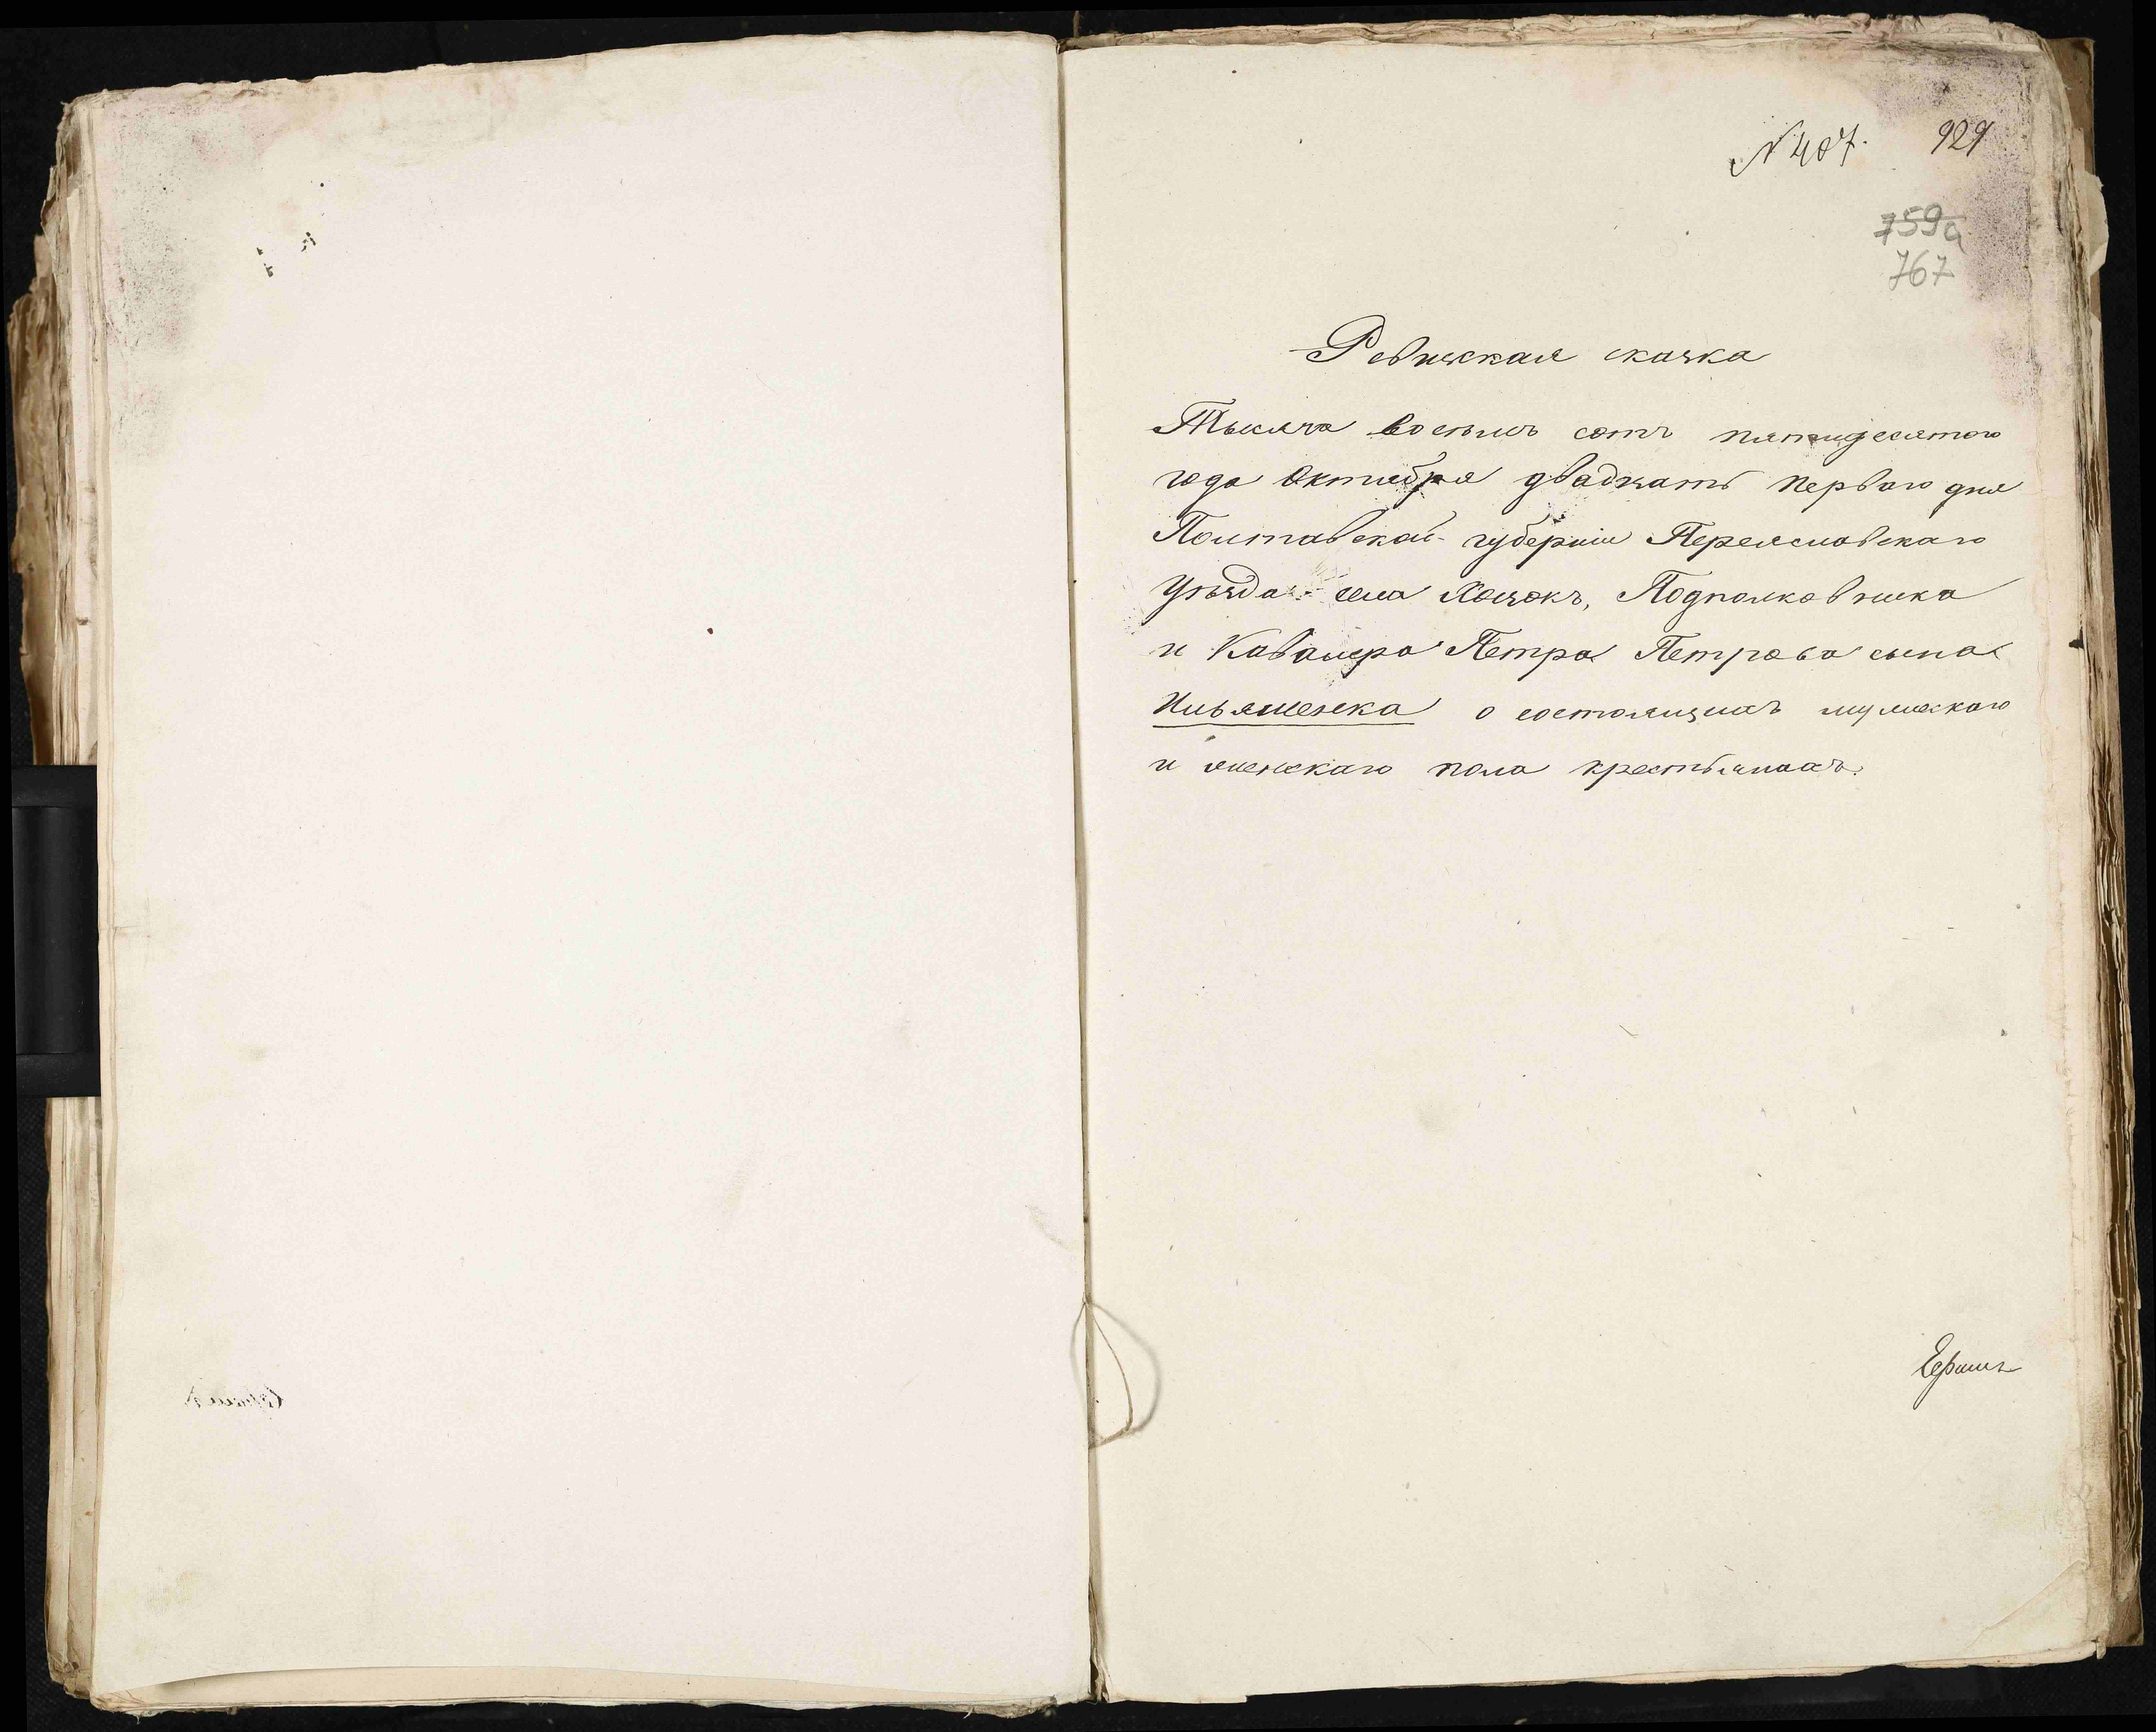 № 407. 929
759а
767
Ревижская сказка
Тысяча восемь сотъ пятидесятого
года Октября двадцать перваго дня
Полтавской губерніи Переяславскаго
Уѣзда села Хоцокъ, Подполковника
и Кавалера Петра Петрова сына
Ильяшенка о состоящихъ мужескаго
и женскаго пола крестьянахъ.